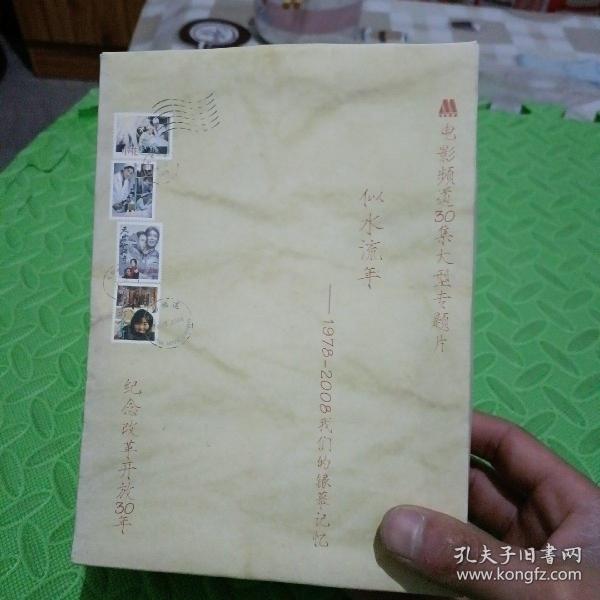 电影频道30集大型专题片
似水流年
——1978-2008我们的银幕记忆
纪念改革开放30年
孔夫子旧书网
www.kongfz.com